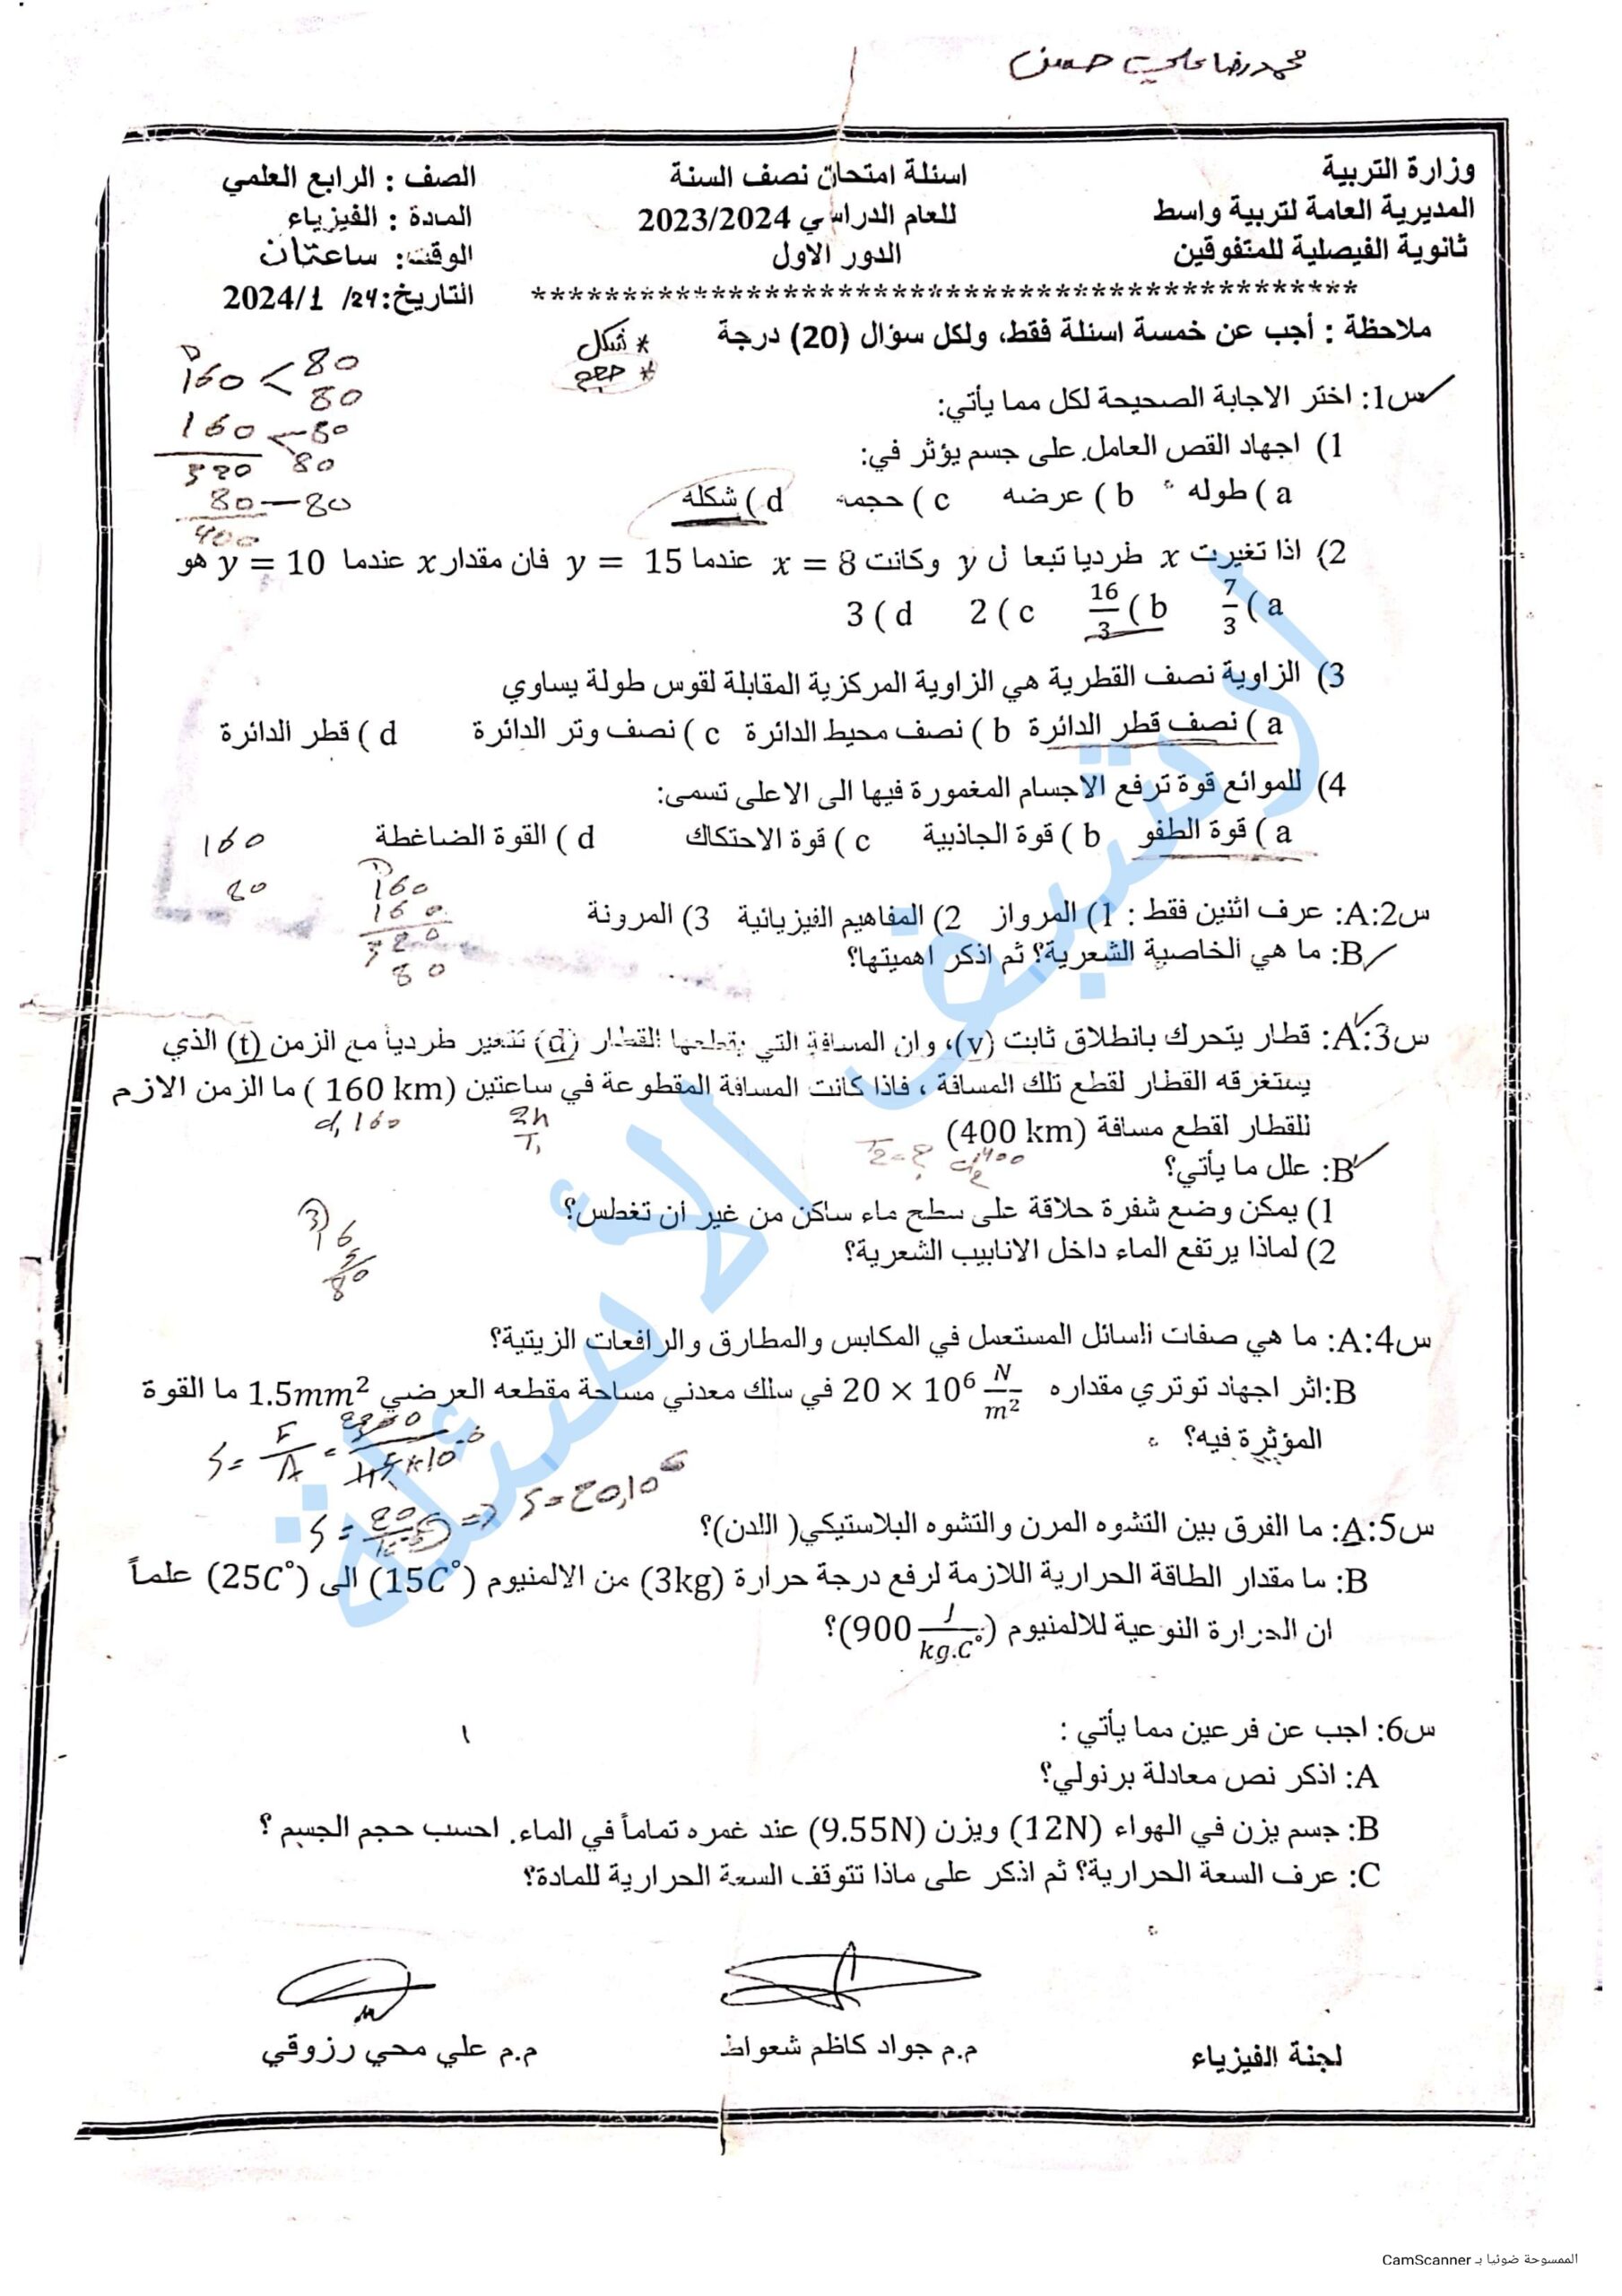 محمد رضا علي حسن
وزارة التربية
المديرية العامة لتربية واسط
ثانوية الفيصلية للمتفوقين
اسئلة امتحان نصف السنة
للعام الدراسي 2023/2024
الدور الاول
الصف : الرابع العلمي
المادة : الفيزياء
الوقت: ساعتان
التاريخ: 24/ 1/2024
*********************************************
ملاحظة : أجب عن خمسة اسئلة فقط، ولكل سؤال (20) درجة
* شكل
* حجم
160 < 80
80
160 80
320 80
80 – 80
400
س1: اختر الاجابة الصحيحة لكل مما يأتي:
1) اجهاد القص العامل على جسم يؤثر في:
a ) طوله b ) عرضه c ) حجمه d ) شكله
2) اذا تغيرت x طرديا تبعا ل y وكانت x = 8 عندما y = 15 فان مقدار x عندما y = 10 هو
a ) 7/3 b ) 16/3 c ) 2 d ) 3
3) الزاوية نصف القطرية هي الزاوية المركزية المقابلة لقوس طولة يساوي
a ) نصف قطر الدائرة b ) نصف محيط الدائرة c ) نصف وتر الدائرة d ) قطر الدائرة
4) للموائع قوة ترفع الاجسام المغمورة فيها الى الاعلى تسمى:
a ) قوة الطفو b ) قوة الجاذبية c ) قوة الاحتكاك d ) القوة الضاغطة
160
80
160
160
320
80
س2:A: عرف اثنين فقط : 1) المرواز 2) المفاهيم الفيزيائية 3) المرونة
B: ما هي الخاصية الشعرية؟ ثم اذكر اهميتها؟
س3:A: قطار يتحرك بانطلاق ثابت (v)، وان المسافة التي يقطعها القطار (d) تتغير طردياً مع الزمن (t) الذي
يستغرقه القطار لقطع تلك المسافة ، فاذا كانت المسافة المقطوعة في ساعتين (160 km ) ما الزمن الازم
للقطار لقطع مسافة (400 km)
d, 160
2h
T1
T2=? d2 400
B: علل ما يأتي؟
1) يمكن وضع شفرة حلاقة على سطح ماء ساكن من غير أن تغطس؟
2) لماذا يرتفع الماء داخل الانابيب الشعرية؟
16
5
80
س4:A: ما هي صفات السائل المستعمل في المكابس والمطارق والرافعات الزيتية؟
B:اثر اجهاد توتري مقداره 20 × 10⁶ N/m² في سلك معدني مساحة مقطعه العرضي 1.5mm² ما القوة
المؤثرة فيه؟
S = F/A =
=> S = 20,10⁶
س5:A: ما الفرق بين التشوه المرن والتشوه البلاستيكي( اللدن)؟
B: ما مقدار الطاقة الحرارية اللازمة لرفع درجة حرارة (3kg) من الالمنيوم (15C°) الى (25C°) علماً
ان الحرارة النوعية للالمنيوم (900 J/kg.C°)؟
س6: اجب عن فرعين مما يأتي :
A: اذكر نص معادلة برنولي؟
B: جسم يزن في الهواء (12N) ويزن (9.55N) عند غمره تماماً في الماء. احسب حجم الجسم ؟
C: عرف السعة الحرارية؟ ثم اذكر على ماذا تتوقف السعة الحرارية للمادة؟
لجنة الفيزياء
م.م جواد كاظم شعواط
م.م علي محي رزوقي
أرشيف الأسئلة
الممسوحة ضوئيا بـ CamScanner